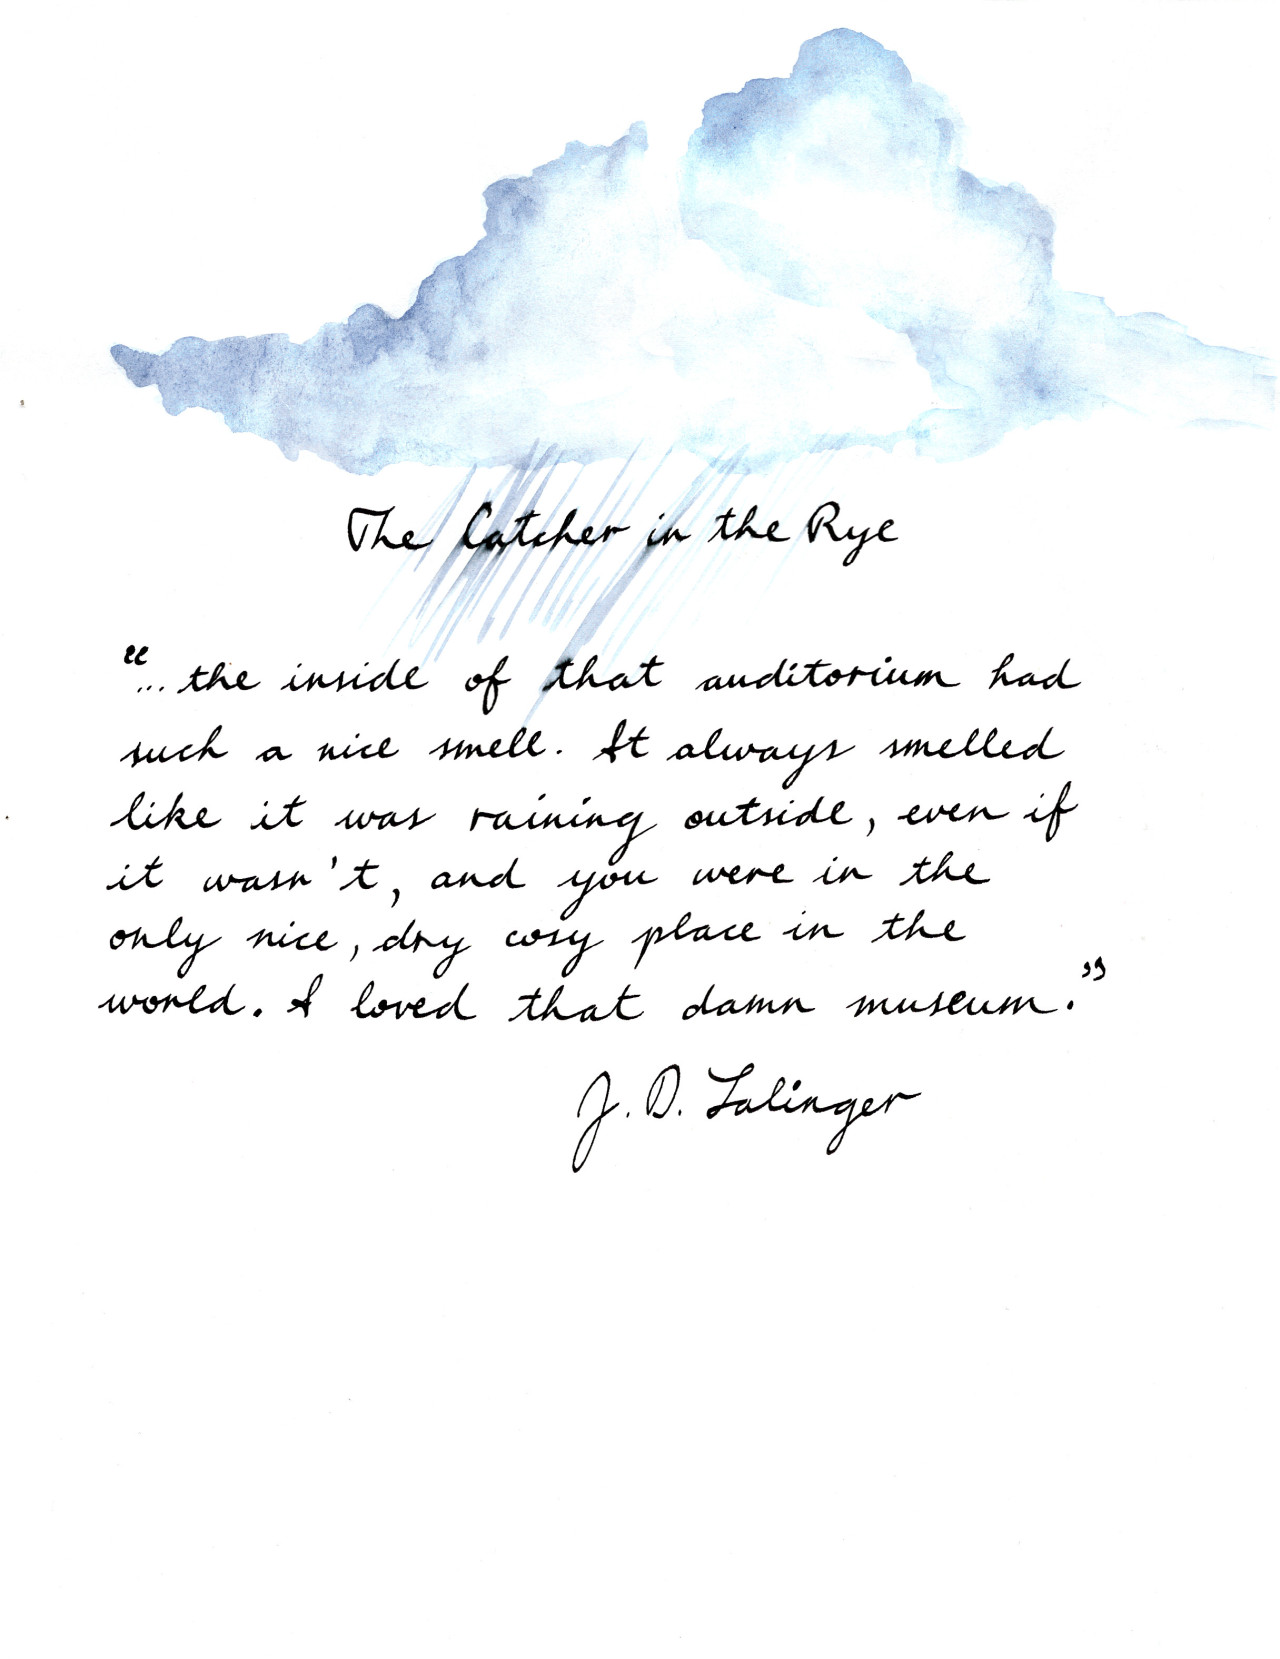 The Catcher in the Rye
"... the inside of that auditorium had
such a nice smell. It always smelled
like it was raining outside, even if
it wasn't, and you were in the
only nice, dry cosy place in the
world. I loved that damn museum."
J. D. Salinger